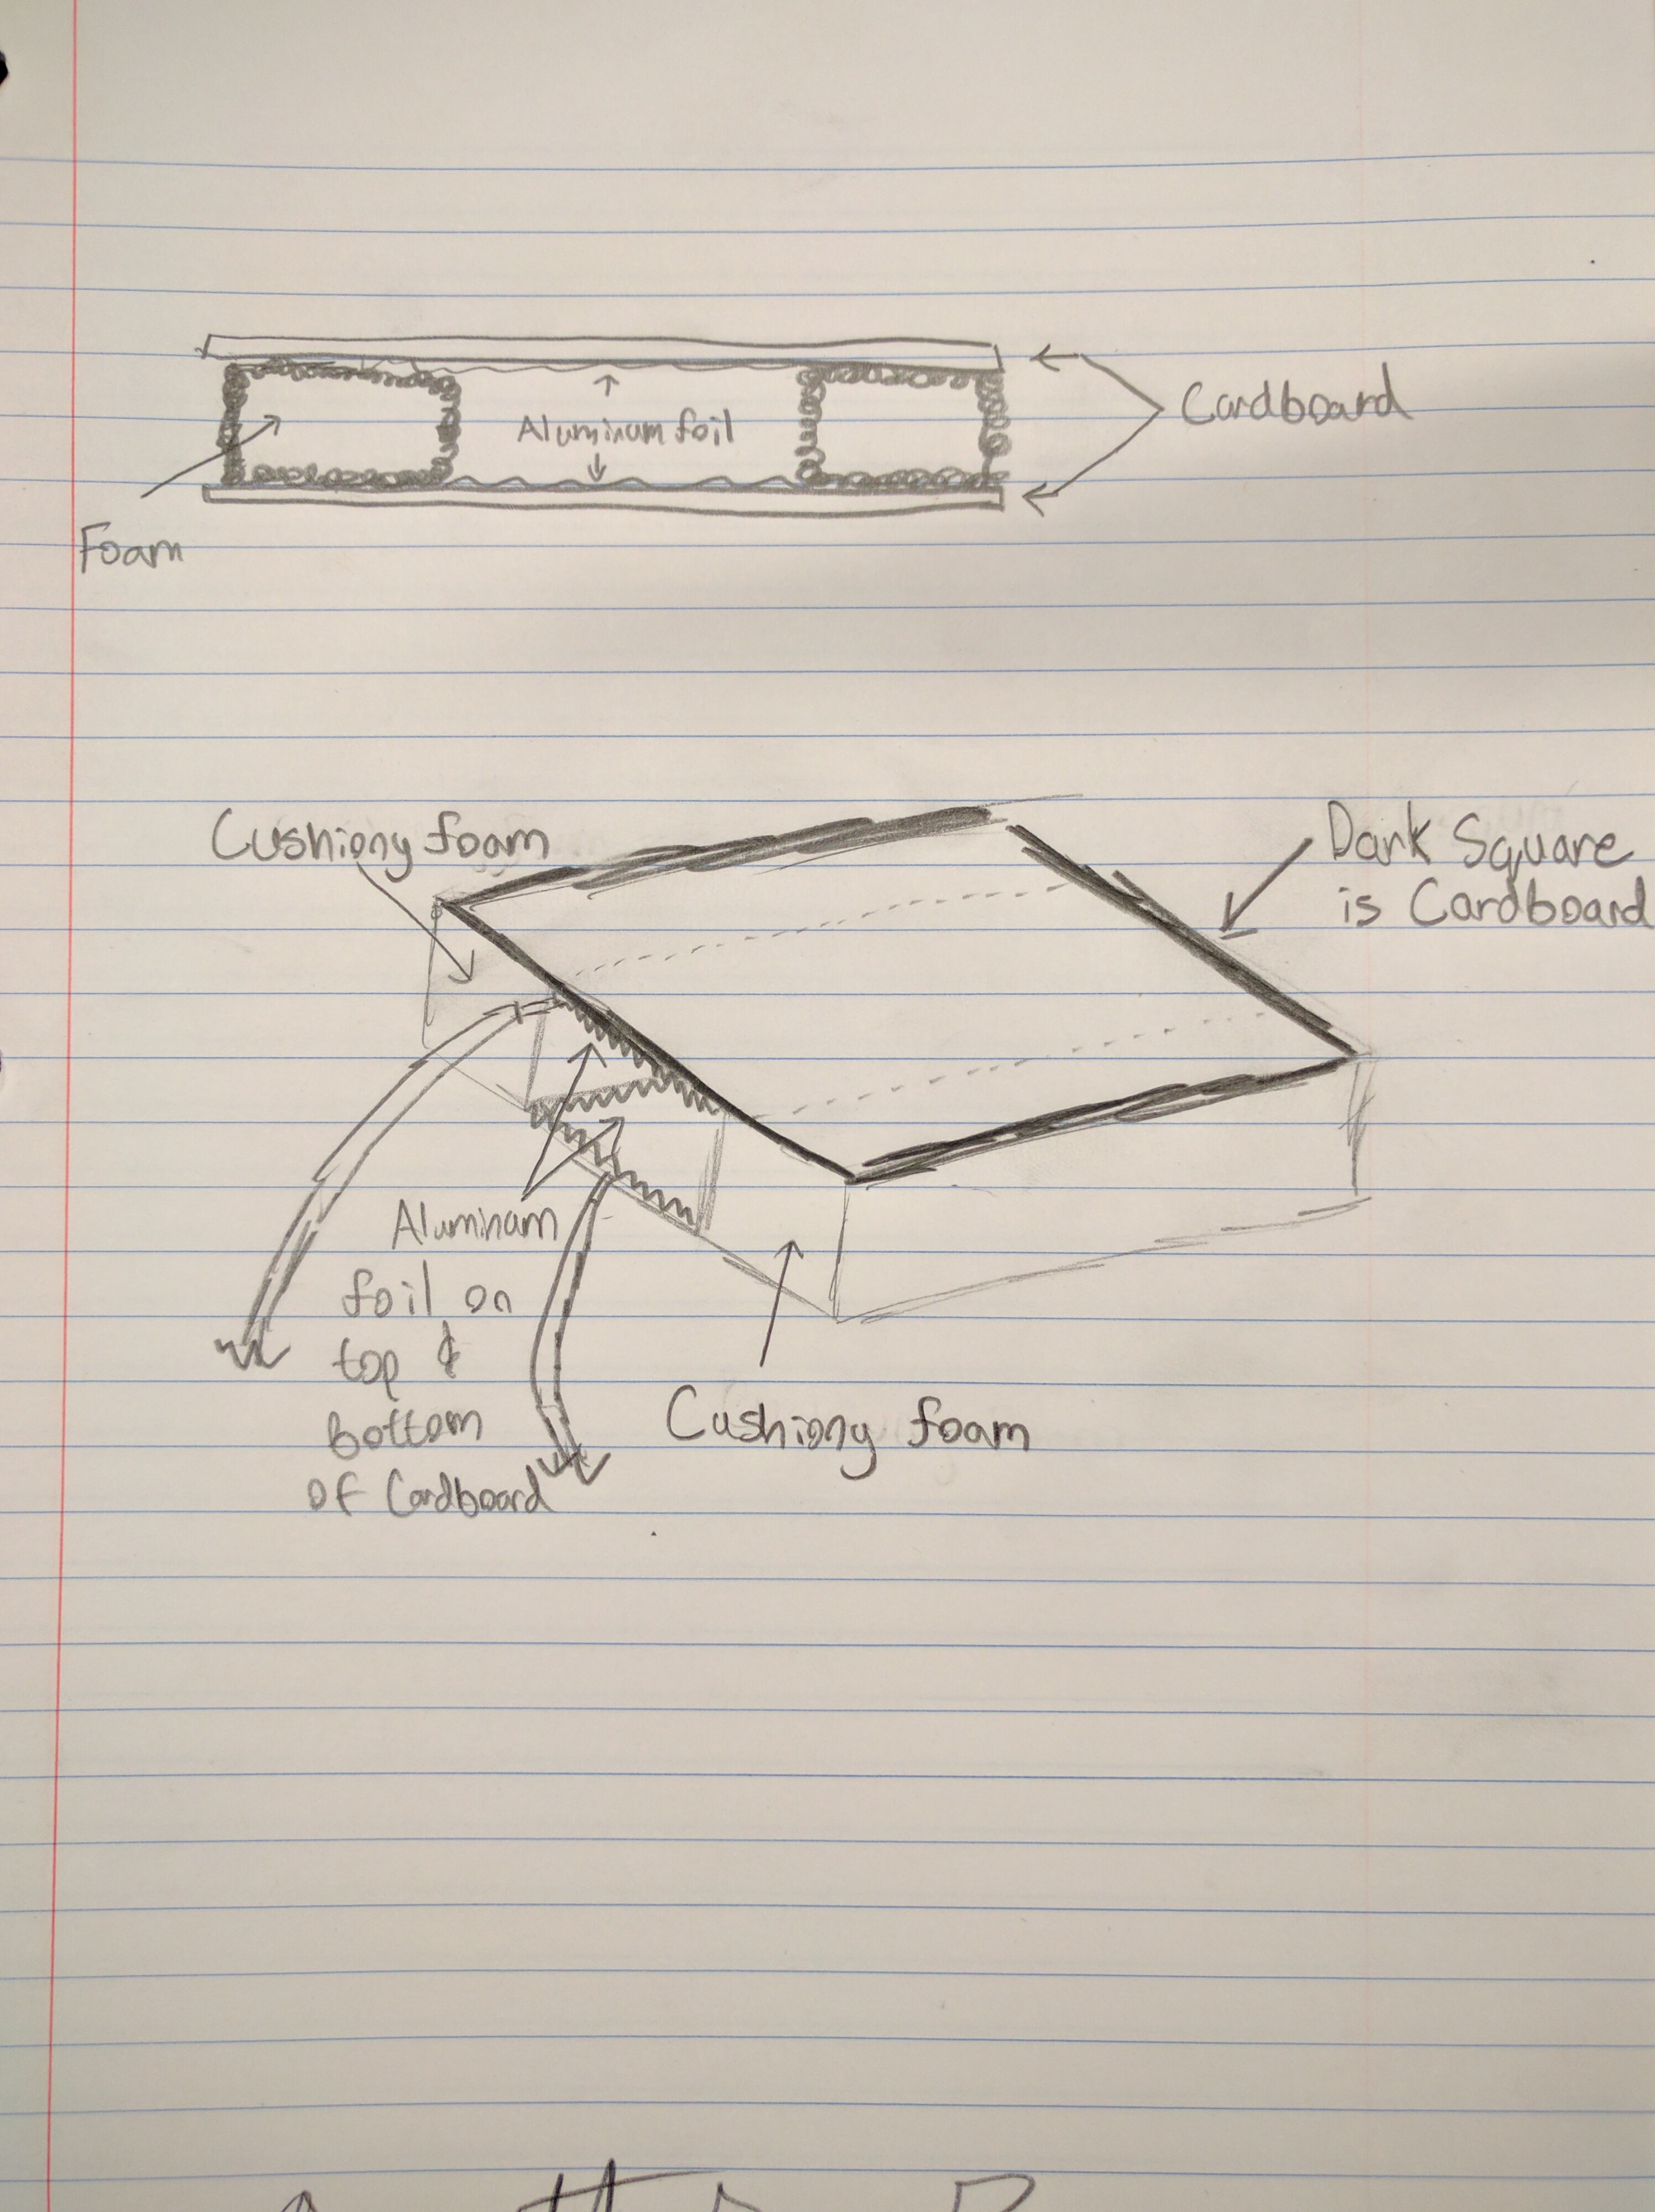 Cardboard
Aluminam foil
Foam
Cushiony foam
Dark Square
is Cardboard
Aluminam
foil on
top &
bottom
of Cardboard
Cushiony foam